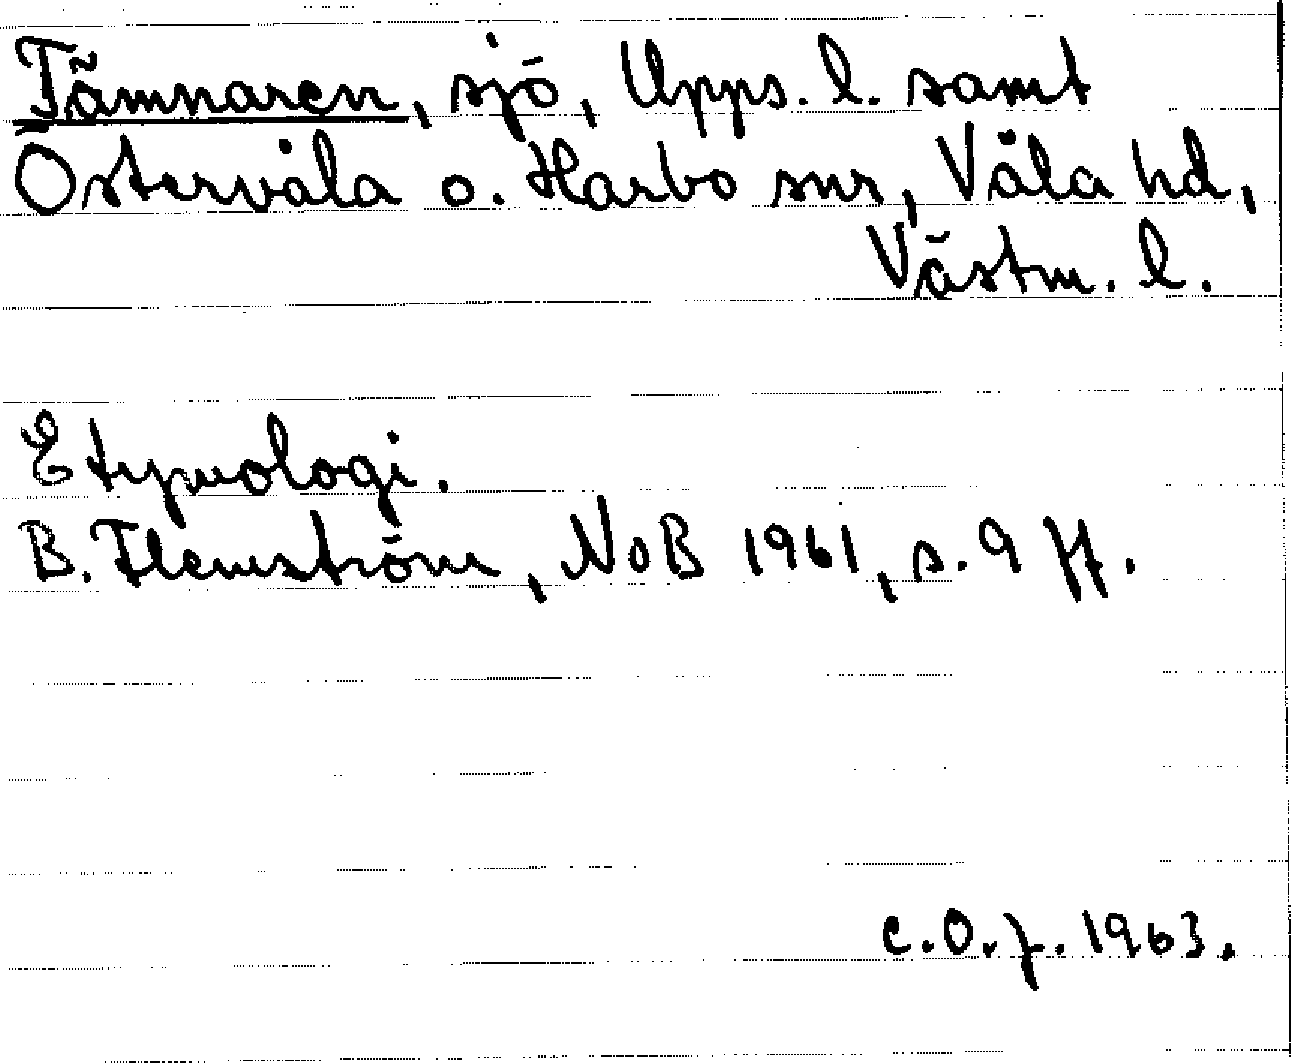 Tämnaren, sjö, Upps. l. samt
Östervåla o. Harbo snr, Våla hd,
Västm. l.
Etymologi.
B. Flemström, NoB 1961, s. 9 ff.
C.O.f. 1963.